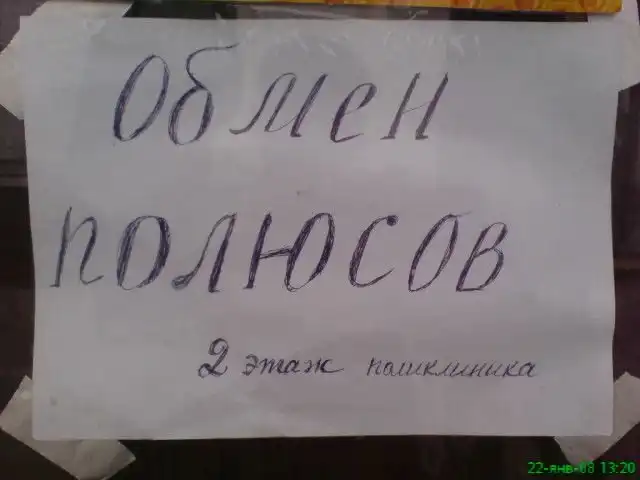 Обмен
полюсов
2 этаж поликлиника
22-янв-08 13:20